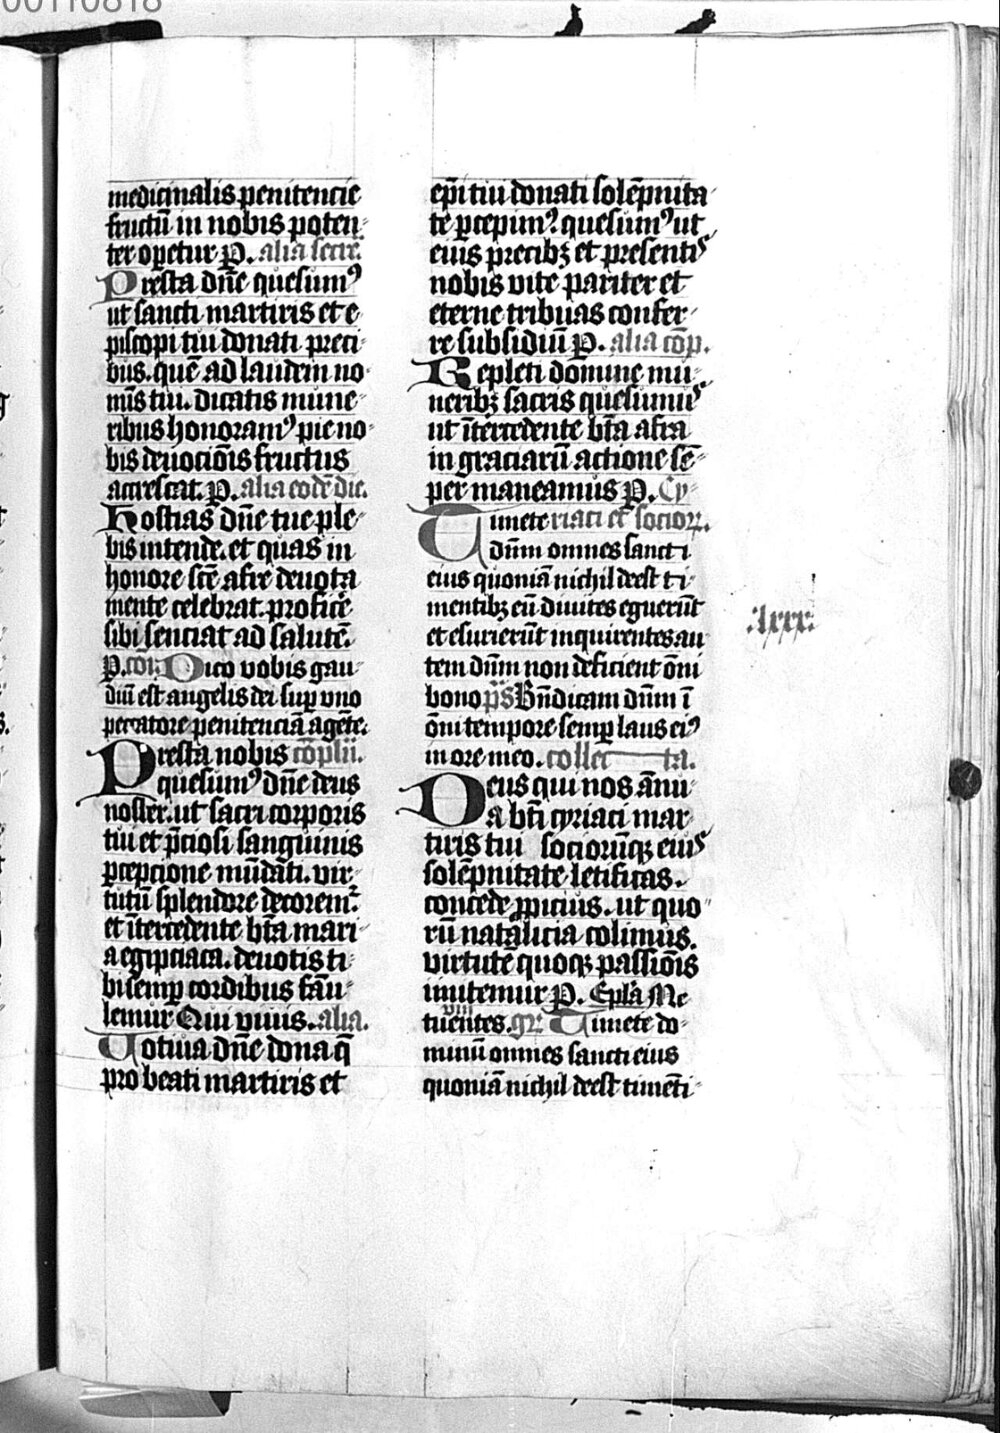 00110818
medicinalis penitencie
fructū in nobis poten-
ter oꝑetur P. alia secre.
Presta dn̄e quesumꝰ
ut sancti martiris et e-
piscopi tui donati preci-
bus. quē ad laudem no-
mīs tui. dicatis mune-
ribus honoramꝰ pie no-
bis deuociōis fructus
accrescat. P. alia eodē die.
Hostias dn̄e tue ple-
bis intende. et quas in
honore scē afre deuota
mente celebrat. proficē
sibi senciat ad salutē.
P. cōr. Dico vobis gau-
diū est angelis dei suꝑ vno
peccatore penitenciā agēte.
Presta nobis cōplii.
quesumꝰ dn̄e deus
noster. ut sacri corporis
tui et p̄ciosi sanguinis
ꝑcepcione mūdati. vir-
tutū splendore decorem᷑.
et ītercedente btā mari-
a egipciaca. deuotis ti-
bi semꝑ cordibus fāu-
lemur Qui viuis. alia.
Uotiua dn̄e dona q̄
pro beati martiris et
ep̄i tui donati solēpnita-
te ꝑcepimꝰ. quesumꝰ ut
eius precibꝫ et presentis
nobis vite pariter et
eterne tribuas confer-
re subsidiū P. alia cōp.
Repleti domine mu-
neribꝫ sacris quesumus
ut ītercedente btā afra
in graciarū actione sē-
per maneamus P. Cy-
Timete riaci et socior̄.
dūm omnes sancti
eius quoniā nichil deest ti-
mentibꝫ eū diuites eguerūt
et esurierūt inquirentes au-
tem dūm non deficient ōni
bono p̄s Bn̄dicam dūm ī
ōni tempore semꝑ laus eiꝰ
in ore meo. collec ta.
Deus qui nos ānu-
a bt̄i cyriaci mar-
tiris tui sociorūqꝫ eius
solēpnitate letificas.
concede ꝓpicius. ut quo-
rū natalicia colimus.
virtutē quoqꝫ passiōis
imitemur P. Epl̄a Me-
tuentes. gr̄. Timete do-
minū omnes sancti eius
quoniā nichil deest timēti-